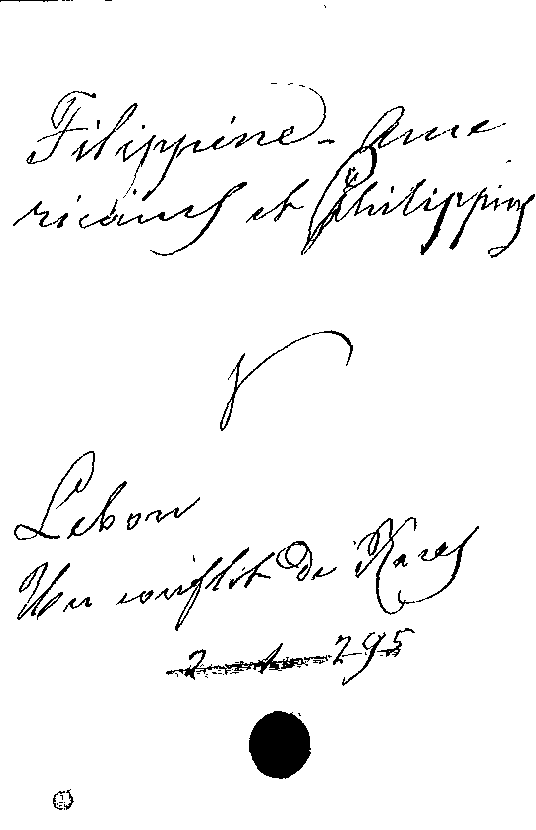 Filippine - Ame
ricains et Philippins
Lebon
Un conflit de Races
2 1 295